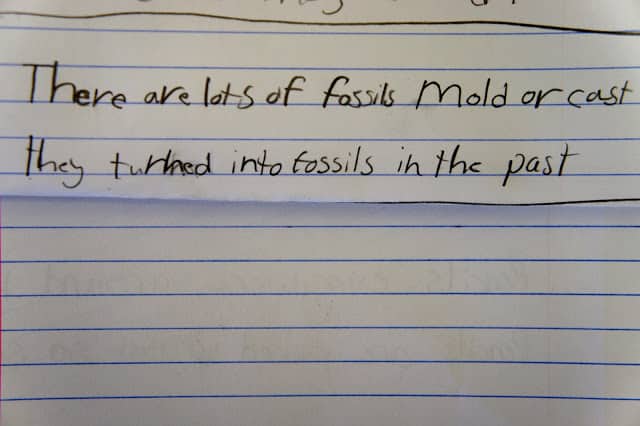 There are lots of fossils Mold or cast
they turned into fossils in the past